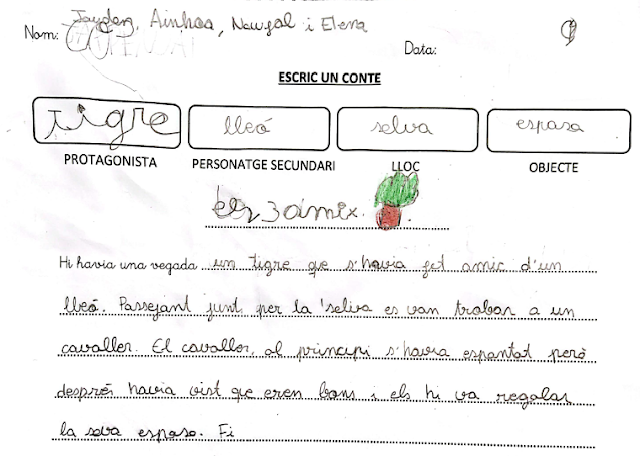 Nom: Jayden, Ainhoa, Nawfal i Elena
Data:
ESCRIC UN CONTE
tigre lleó selva espasa
PROTAGONISTA PERSONATGE SECUNDARI LLOC OBJECTE
els 3 amix.
Hi havia una vegada un tigre que s'havia fet amic d'un
lleó. Passejant junt per la selva es van trobar a un
cavaller. El cavaller, al principi s'havia espantat però
després havia vist que eren bons i els hi va regalar
la seva espasa. Fi